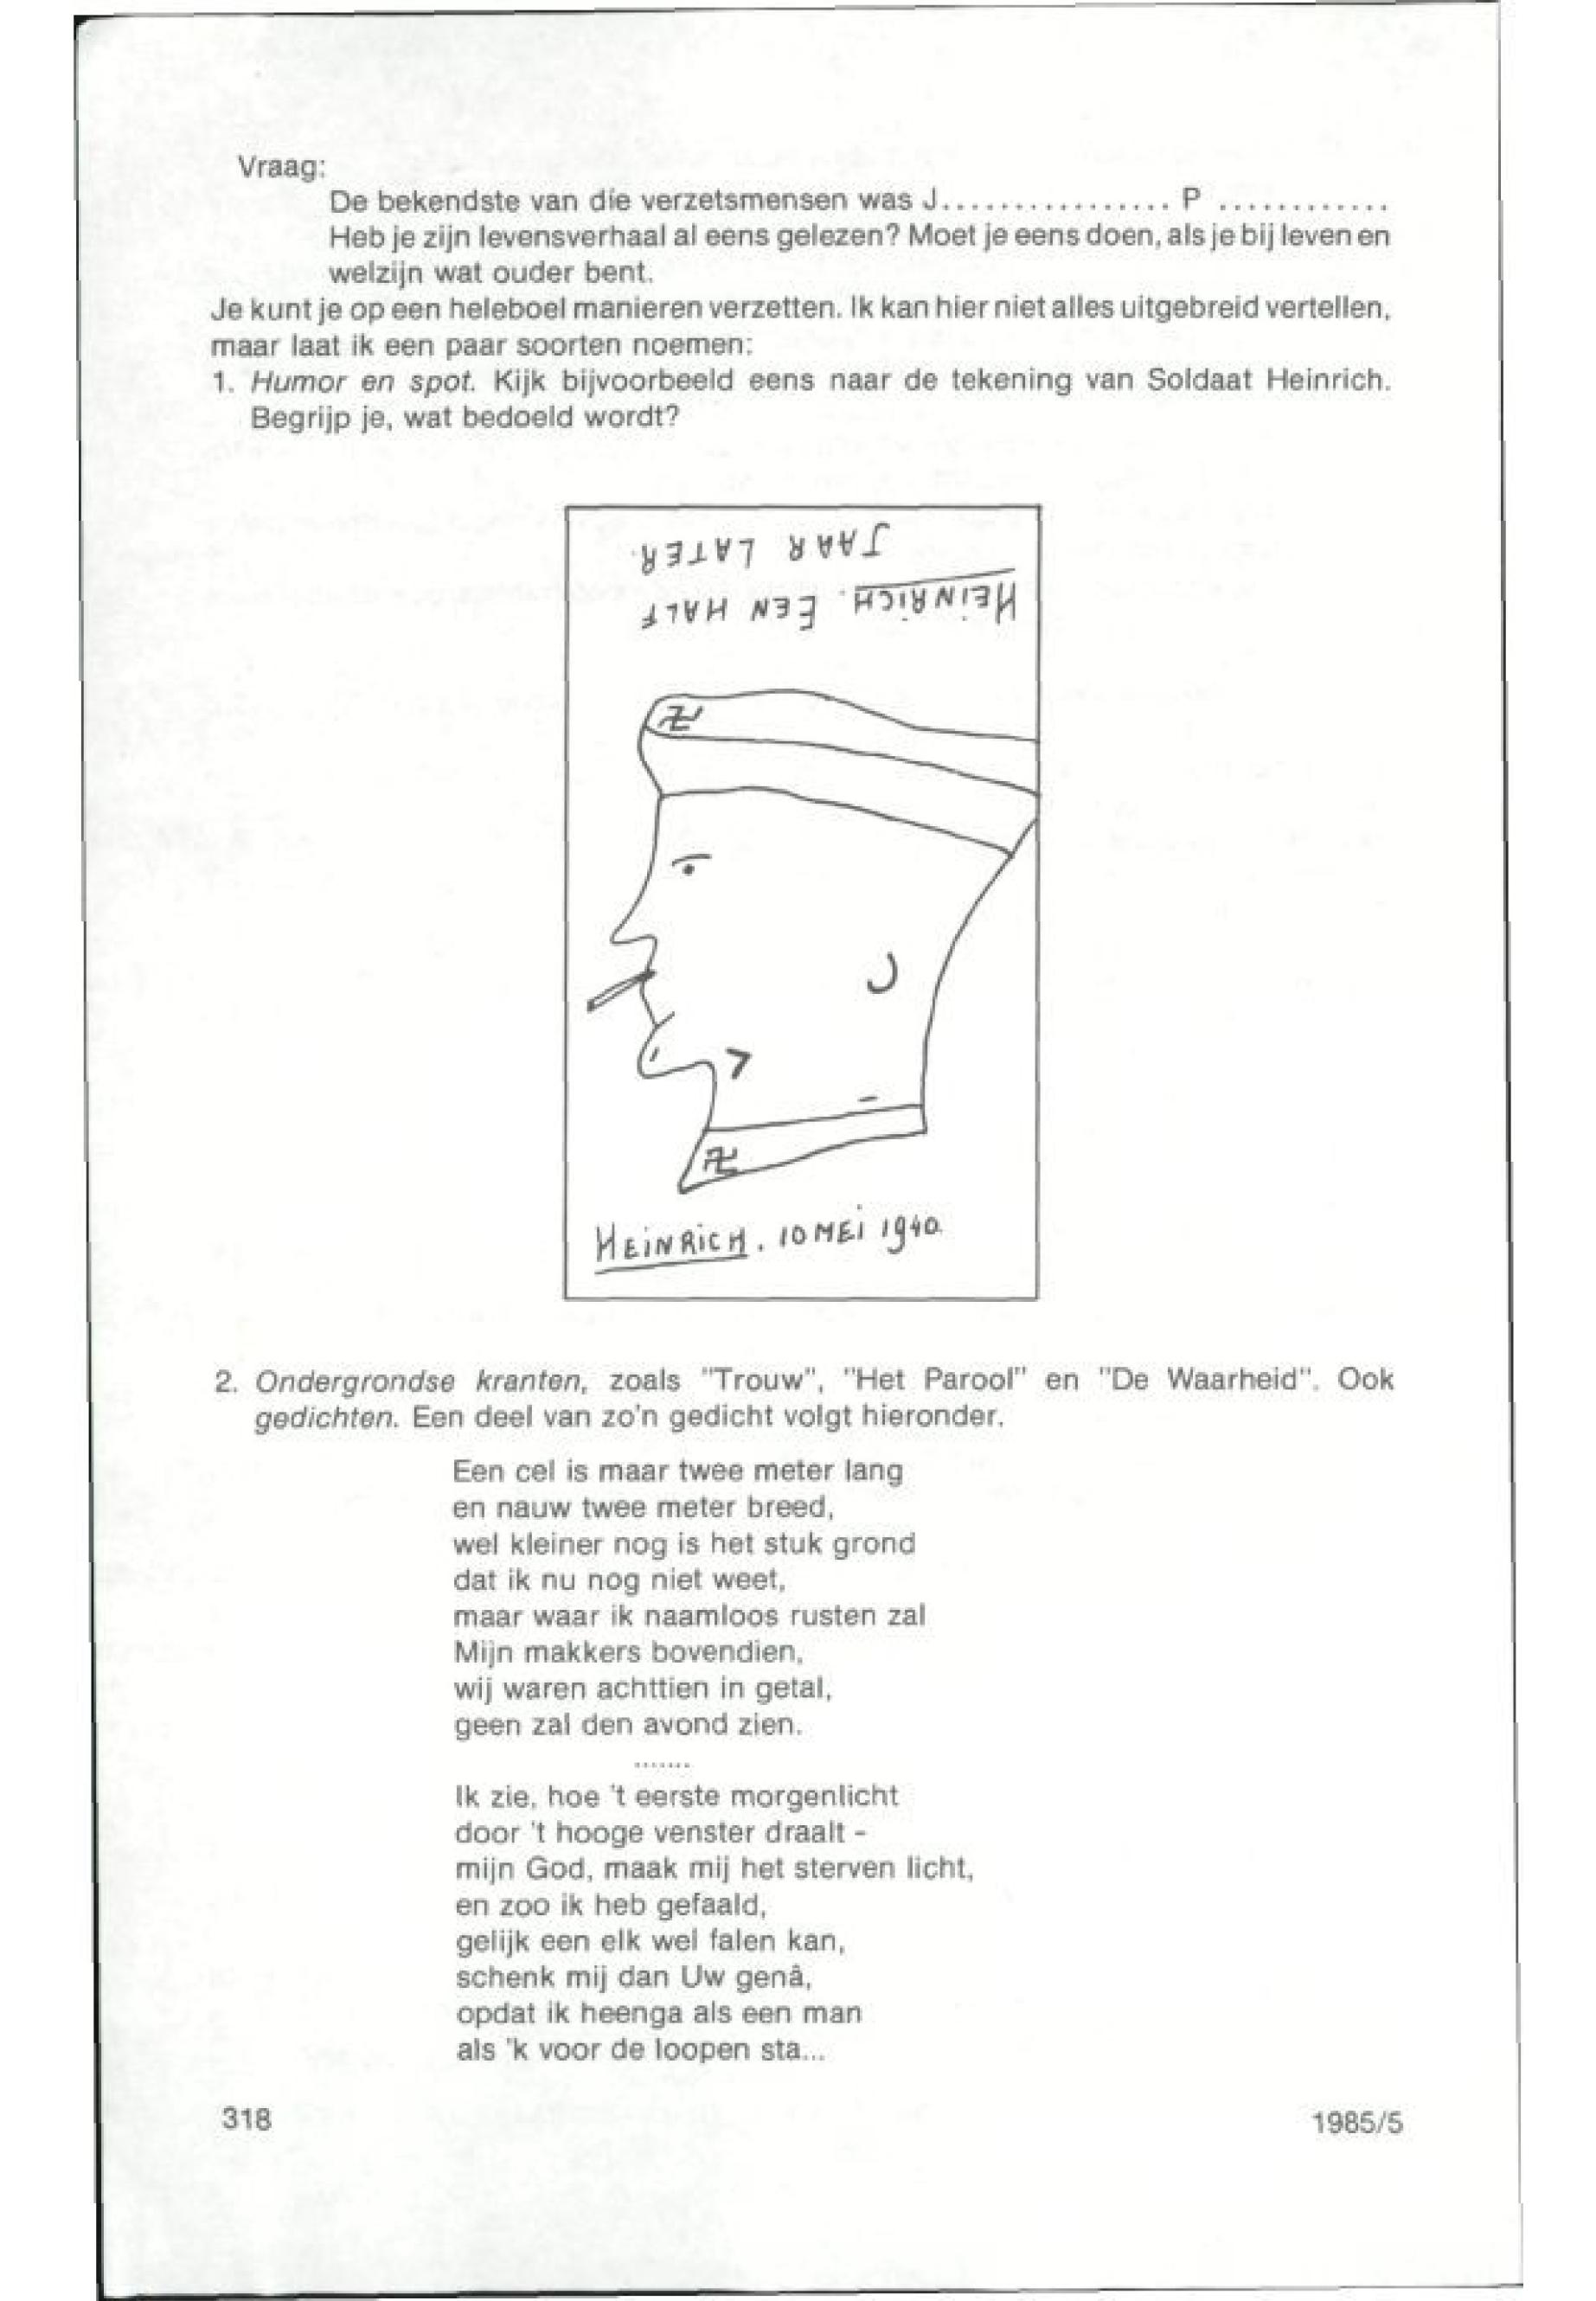 Vraag:
De bekendste van die verzetsmensen was J................ P ............
Heb je zijn levensverhaal al eens gelezen? Moet je eens doen, als je bij leven en
welzijn wat ouder bent.
Je kunt je op een heleboel manieren verzetten. Ik kan hier niet alles uitgebreid vertellen,
maar laat ik een paar soorten noemen:
1. Humor en spot. Kijk bijvoorbeeld eens naar de tekening van Soldaat Heinrich.
Begrijp je, wat bedoeld wordt?
HEINRICH. EEN HALF
JAAR LATER.
HEINRICH. 10 MEI 1940.
2. Ondergrondse kranten, zoals "Trouw", "Het Parool" en "De Waarheid". Ook
gedichten. Een deel van zo'n gedicht volgt hieronder.
Een cel is maar twee meter lang
en nauw twee meter breed,
wel kleiner nog is het stuk grond
dat ik nu nog niet weet,
maar waar ik naamloos rusten zal
Mijn makkers bovendien,
wij waren achttien in getal,
geen zal den avond zien.
.......
Ik zie, hoe 't eerste morgenlicht
door 't hooge venster draalt -
mijn God, maak mij het sterven licht,
en zoo ik heb gefaald,
gelijk een elk wel falen kan,
schenk mij dan Uw genâ,
opdat ik heenga als een man
als 'k voor de loopen sta...
318
1985/5